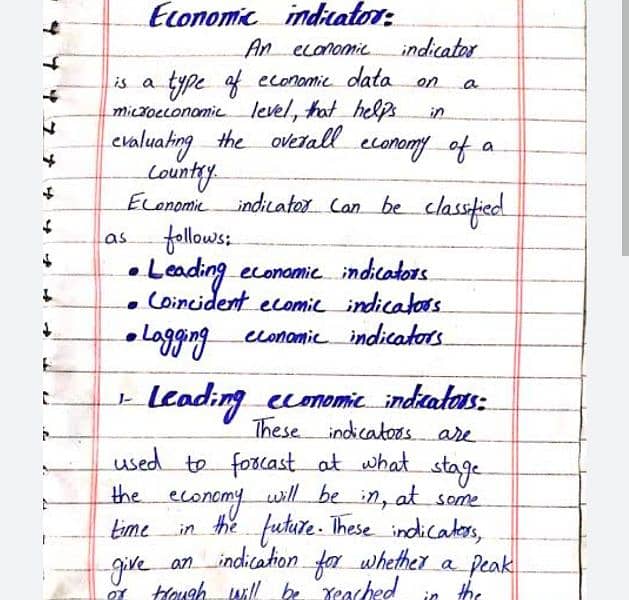 Economic indicator:
An economic indicator
is a type of economic data on a
microeconomic level, that helps in
evaluating the overall economy of a
Country.
Economic indicator Can be classified
as follows:
• Leading economic indicators
• Coincident ecomic indicators
• Lagging economic indicators
1- Leading economic indicators:
These indicators are
used to forcast at what stage
the economy will be in, at some
time in the future. These indicators,
give an indication for whether a Peak
or trough will be reached in the